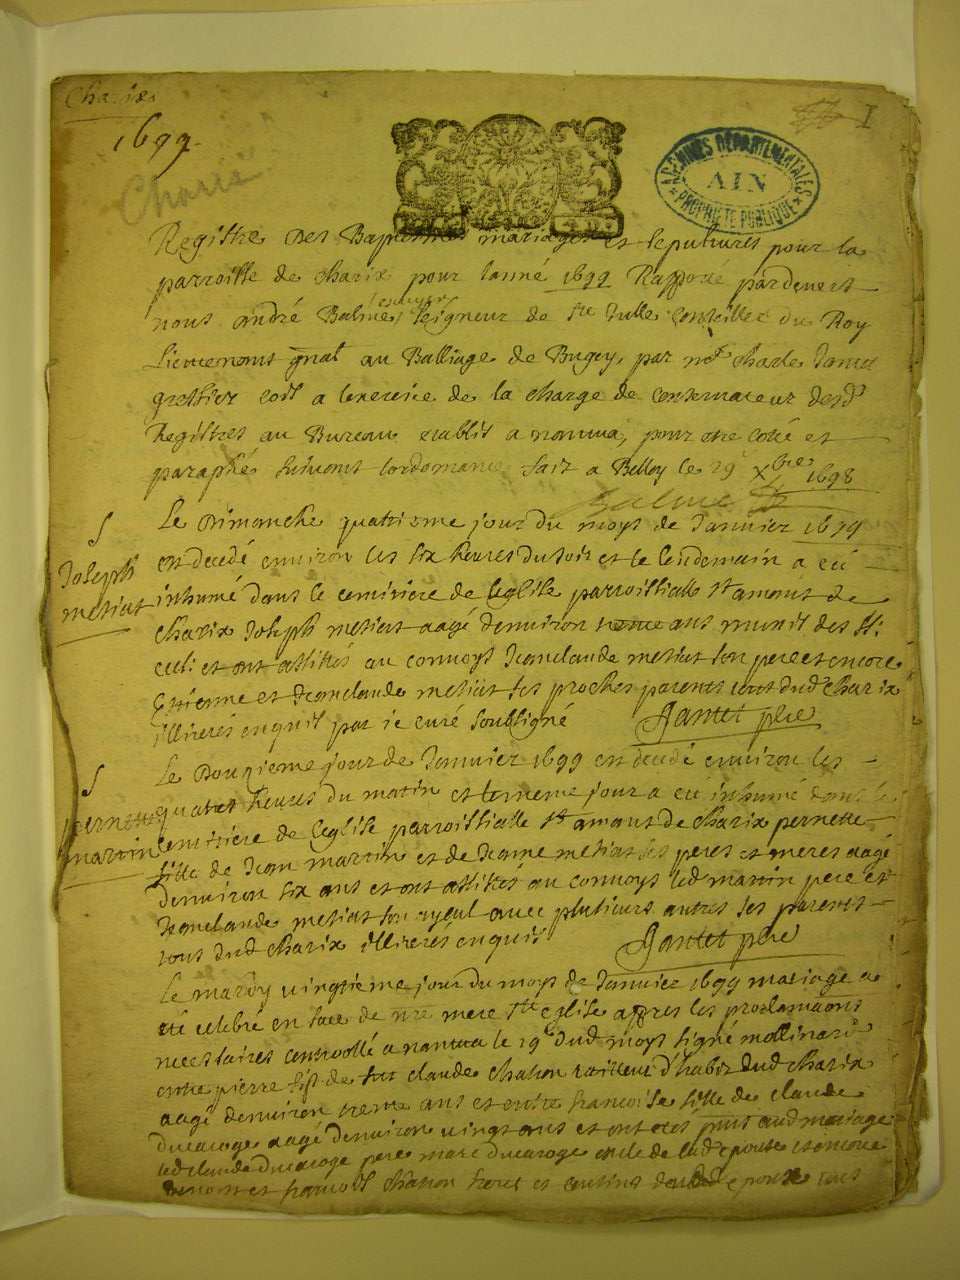 Charix
1699
I
Charix
ARCHIVES DÉPARTEMENTALES
AIN
PROPRIÉTÉ PUBLIQUE
Registre des Baptesmes mariages et sepultures pour la
parroisse de Charix pour lanné 1699 Rapporté pardevers
escuyer
nous andré Balme Seigneur de Ste Julle Conseiller du Roy
Lieutenant gnal au Balliage de Bugey, par mre Charle
greffier commis a lexercice de la charge de Conservateur desd
Registres au Bureau establit a nantua, pour etre coté et
paraphé suivant lordonnance fait a Belley le 29 xbre 1698
Balme
Joseph
metiat
Le Dimanche quattrieme jour du moys de Janvier 1699
est decedé environ les six heures du soir et le lendemain a eté
inhumé dans le cemitiere de leglise parroissialle St amant de
Charix Joseph metiat aagé denviron ans munit des
et ont assistés au convoys Jeanclaude metiat son pere et encore
Estienne et Jeanclaude metiat ses proches parents tous dud Charix
illiterés enquit par ie curé soubsigné Jantet ptre
pernette
martin
Le Douzieme jour de Janvier 1699 est decedé environ les
quatres heures du matin et le meme jour a eté inhumé dans le
cemitiere de leglise parroissialle St amant de Charix pernette
fille de Jean martin et de Jeanne metiat ses peres et meres aagé
denviron six ans et ont assistés au convoys led martin pere et
Jeanclaude metiat son ayeul avec plusieurs autres ses parents
tous dud Charix illiterés enquis Jantet ptre
Le mardy vingtieme jour du moys de Janvier 1699 mariage a
eté celebré en face de nre mere Ste Eglise appres les proclamaons
necessaires controollé a nantua le 19e dud moys signé mollinard
entre pierre fils de feu claude Chation tailleur d'habit dud Charix
aagé denviron trente ans et entre francoise fille de claude
Ducaroge aagé denviron vingt ans et ont etés pnts aud mariage
led claude Ducaroge pere marc Ducaroge oncle de lad epouse et encore
et francois Chation freres et cousins dud epoux tous